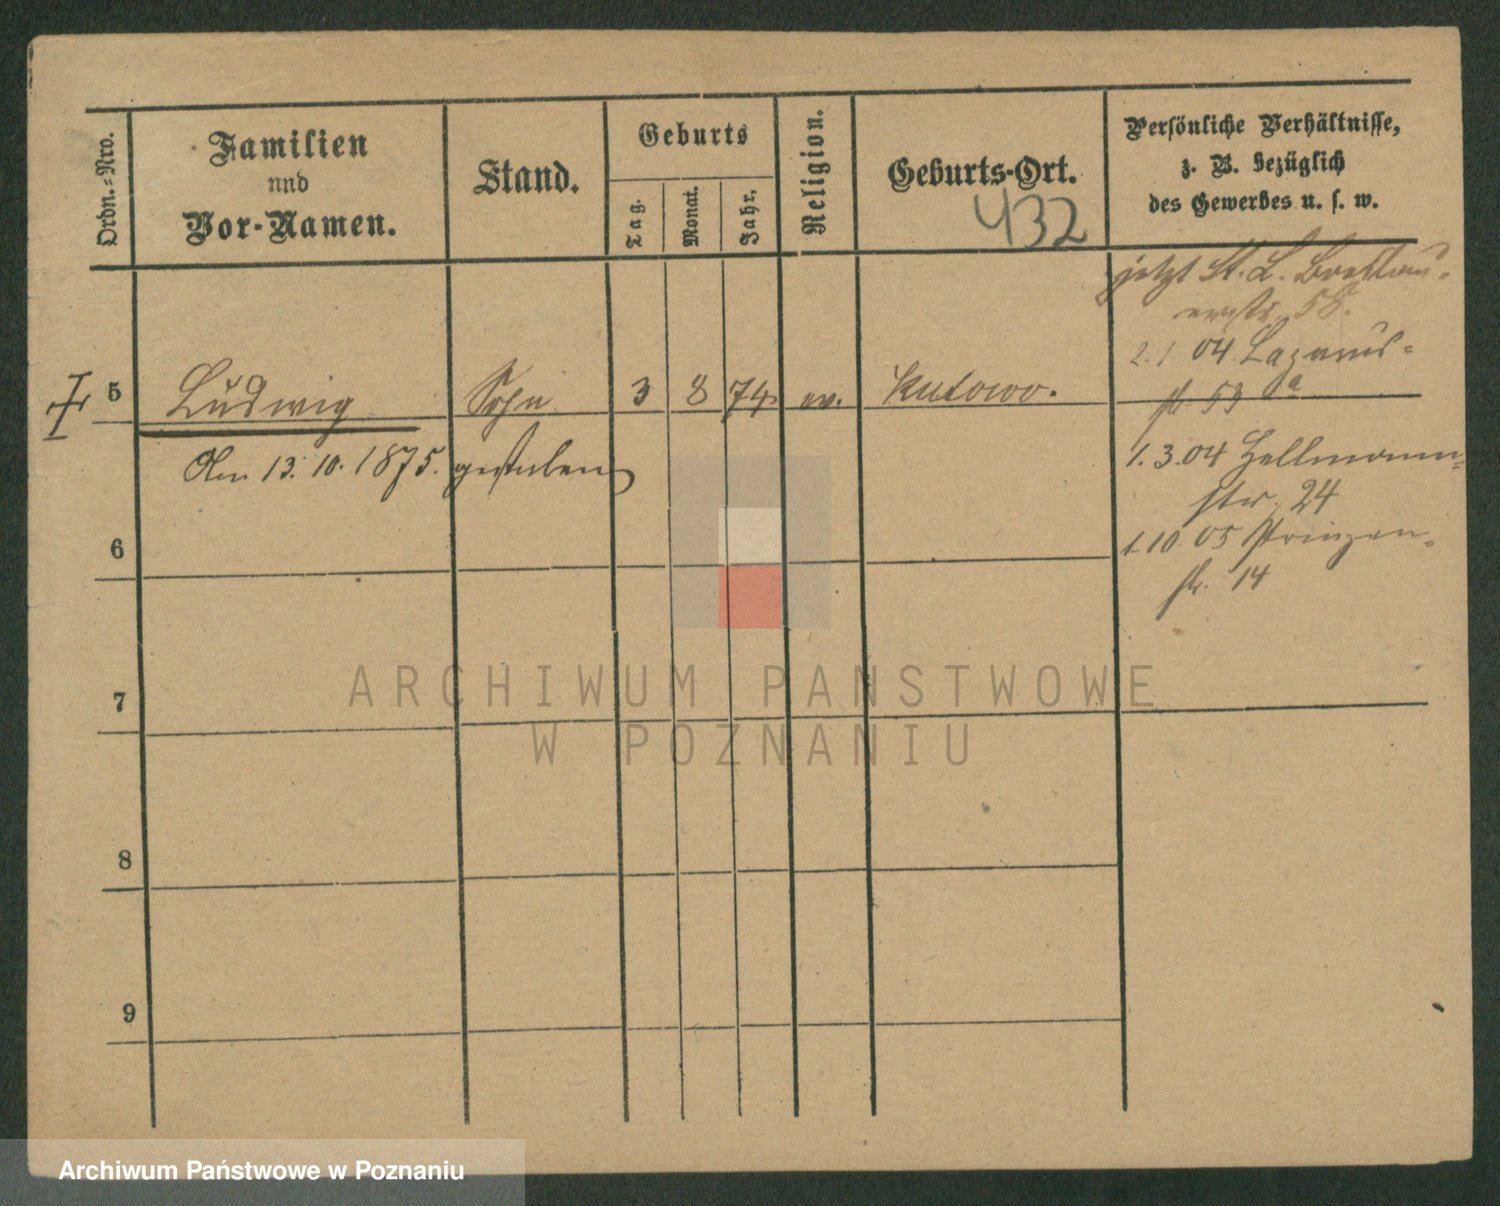 Ordn.=Nro.
Familien
und
Vor-Namen.
Stand.
Geburts
Tag.
Monat.
Jahr.
Religion.
Geburts-Ort.
432
Persönliche Verhältnisse,
z. B. bezüglich
des Gewerbes u. s. w.
jetzt St. L. Breslau-
erstr. 58.
2.1 04 Lazarus-
str. 53 a
5 Ludwig Sohn 3 8 74 ev. Kutowo.
Am 13. 10. 1875. gestorben
1.3.04 Hellmann-
str. 24
6
1.10 05 Prinzen-
str. 14
7
8
9
ARCHIWUM PAŃSTWOWE
W POZNANIU
Archiwum Państwowe w Poznaniu